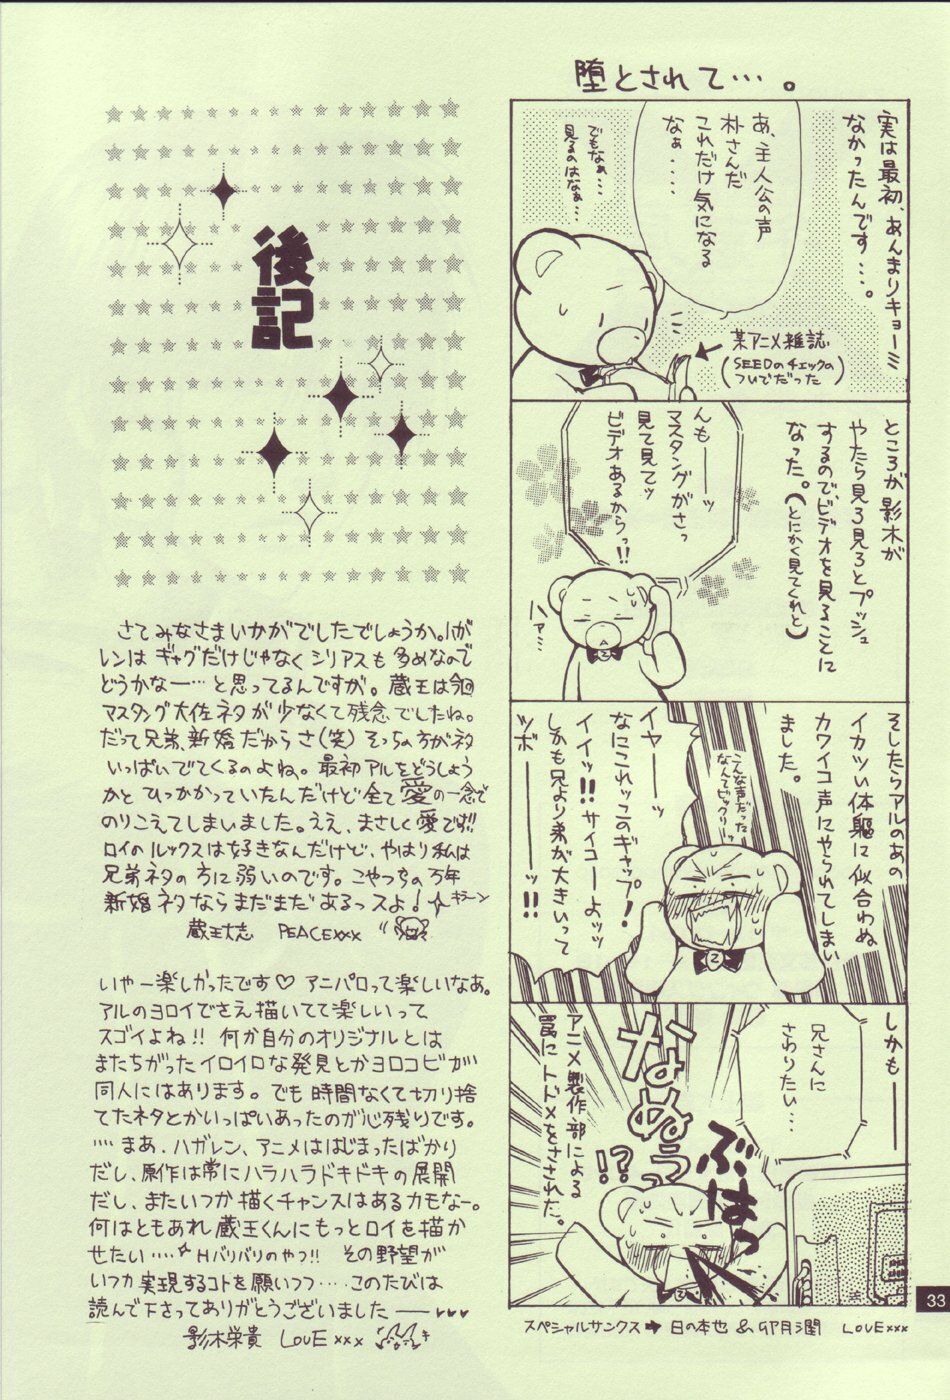 堕とされて…。
実は最初、あんまりキョーミ
なかったんです…。
あ、主人公の声
朴さんだ
これだけ気になる
なぁ‥‥
でもなぁ…
見るのはなぁ…
某アニメ雑誌
(SEEDのチェックの
ついでだった)
ところが影木が
やたら見ろ見ろとプッシュ
するので、ビデオを見ることに
なった。(とにかく見てくれと)
んも――ッ
マスタングがさっ
見て見てッ
ビデオあるからっ!!
ハァ…
そしたらアルのあの
イカツい体軀に似合わぬ
カワイコ声にやられてしまい
ました。
こんな声だった
なんてビックリーッ
イヤ――ッ
なにこれッこのギャップ!
イイッ!!サイコーよッッ
しかも兄より弟が大きいって
ツボ――ッ!!
しかも――
兄さんに
さわりたい…
ぶはっ
なぬうっ!?
アニメ製作部による
罠にトドメをさされた。
スペシャルサンクス➡日の本也 & 卯月潤 LOVExxx
33
後記
さてみなさまいかがでしたでしょうか。ハガ
レンはギャグだけじゃなくシリアスも多めなので
どうかなー…と思ってるんですが。蔵王は今回
マスタング大佐ネタが少なくて残念でしたね。
だって兄弟、新婚だからさ(笑)そっちの方がネタ
いっぱいでてくるのよね。最初アルをどうしょう
かと ひっかかっていたんだけど全て愛の一念で
のりこえてしまいました。ええ、まさしく愛です!!
ロイのルックスは好きなんだけど、やはり私は
兄弟ネタの方に弱いのです。こやつらの万年
新婚ネタならまだまだあるっスよ! キラーン
蔵王大志 PEACExxx
いやー楽しかったです♡ アニパロって楽しいなあ。
アルのヨロイでさえ描いてて楽しいって
スゴイよね!! 何か自分のオリジナルとは
またちがったイロイロな発見とかヨロコビが
同人にはあります。でも時間なくて切り捨
てたネタとかいっぱいあったのが心残りです。
‥‥まあ、ハガレン、アニメははじまったばかり
だし、原作は常にハラハラドキドキの展開
だし、またいつか描くチャンスはあるカモなー。
何はともあれ蔵王くんにもっとロイを描か
せたい‥‥☆Hバリバリのやつ!! その野望が
いつか実現するコトを願いつつ‥‥このたびは
読んで下さってありがとうございました――♥♥♥
影木栄貴 LOVExxx